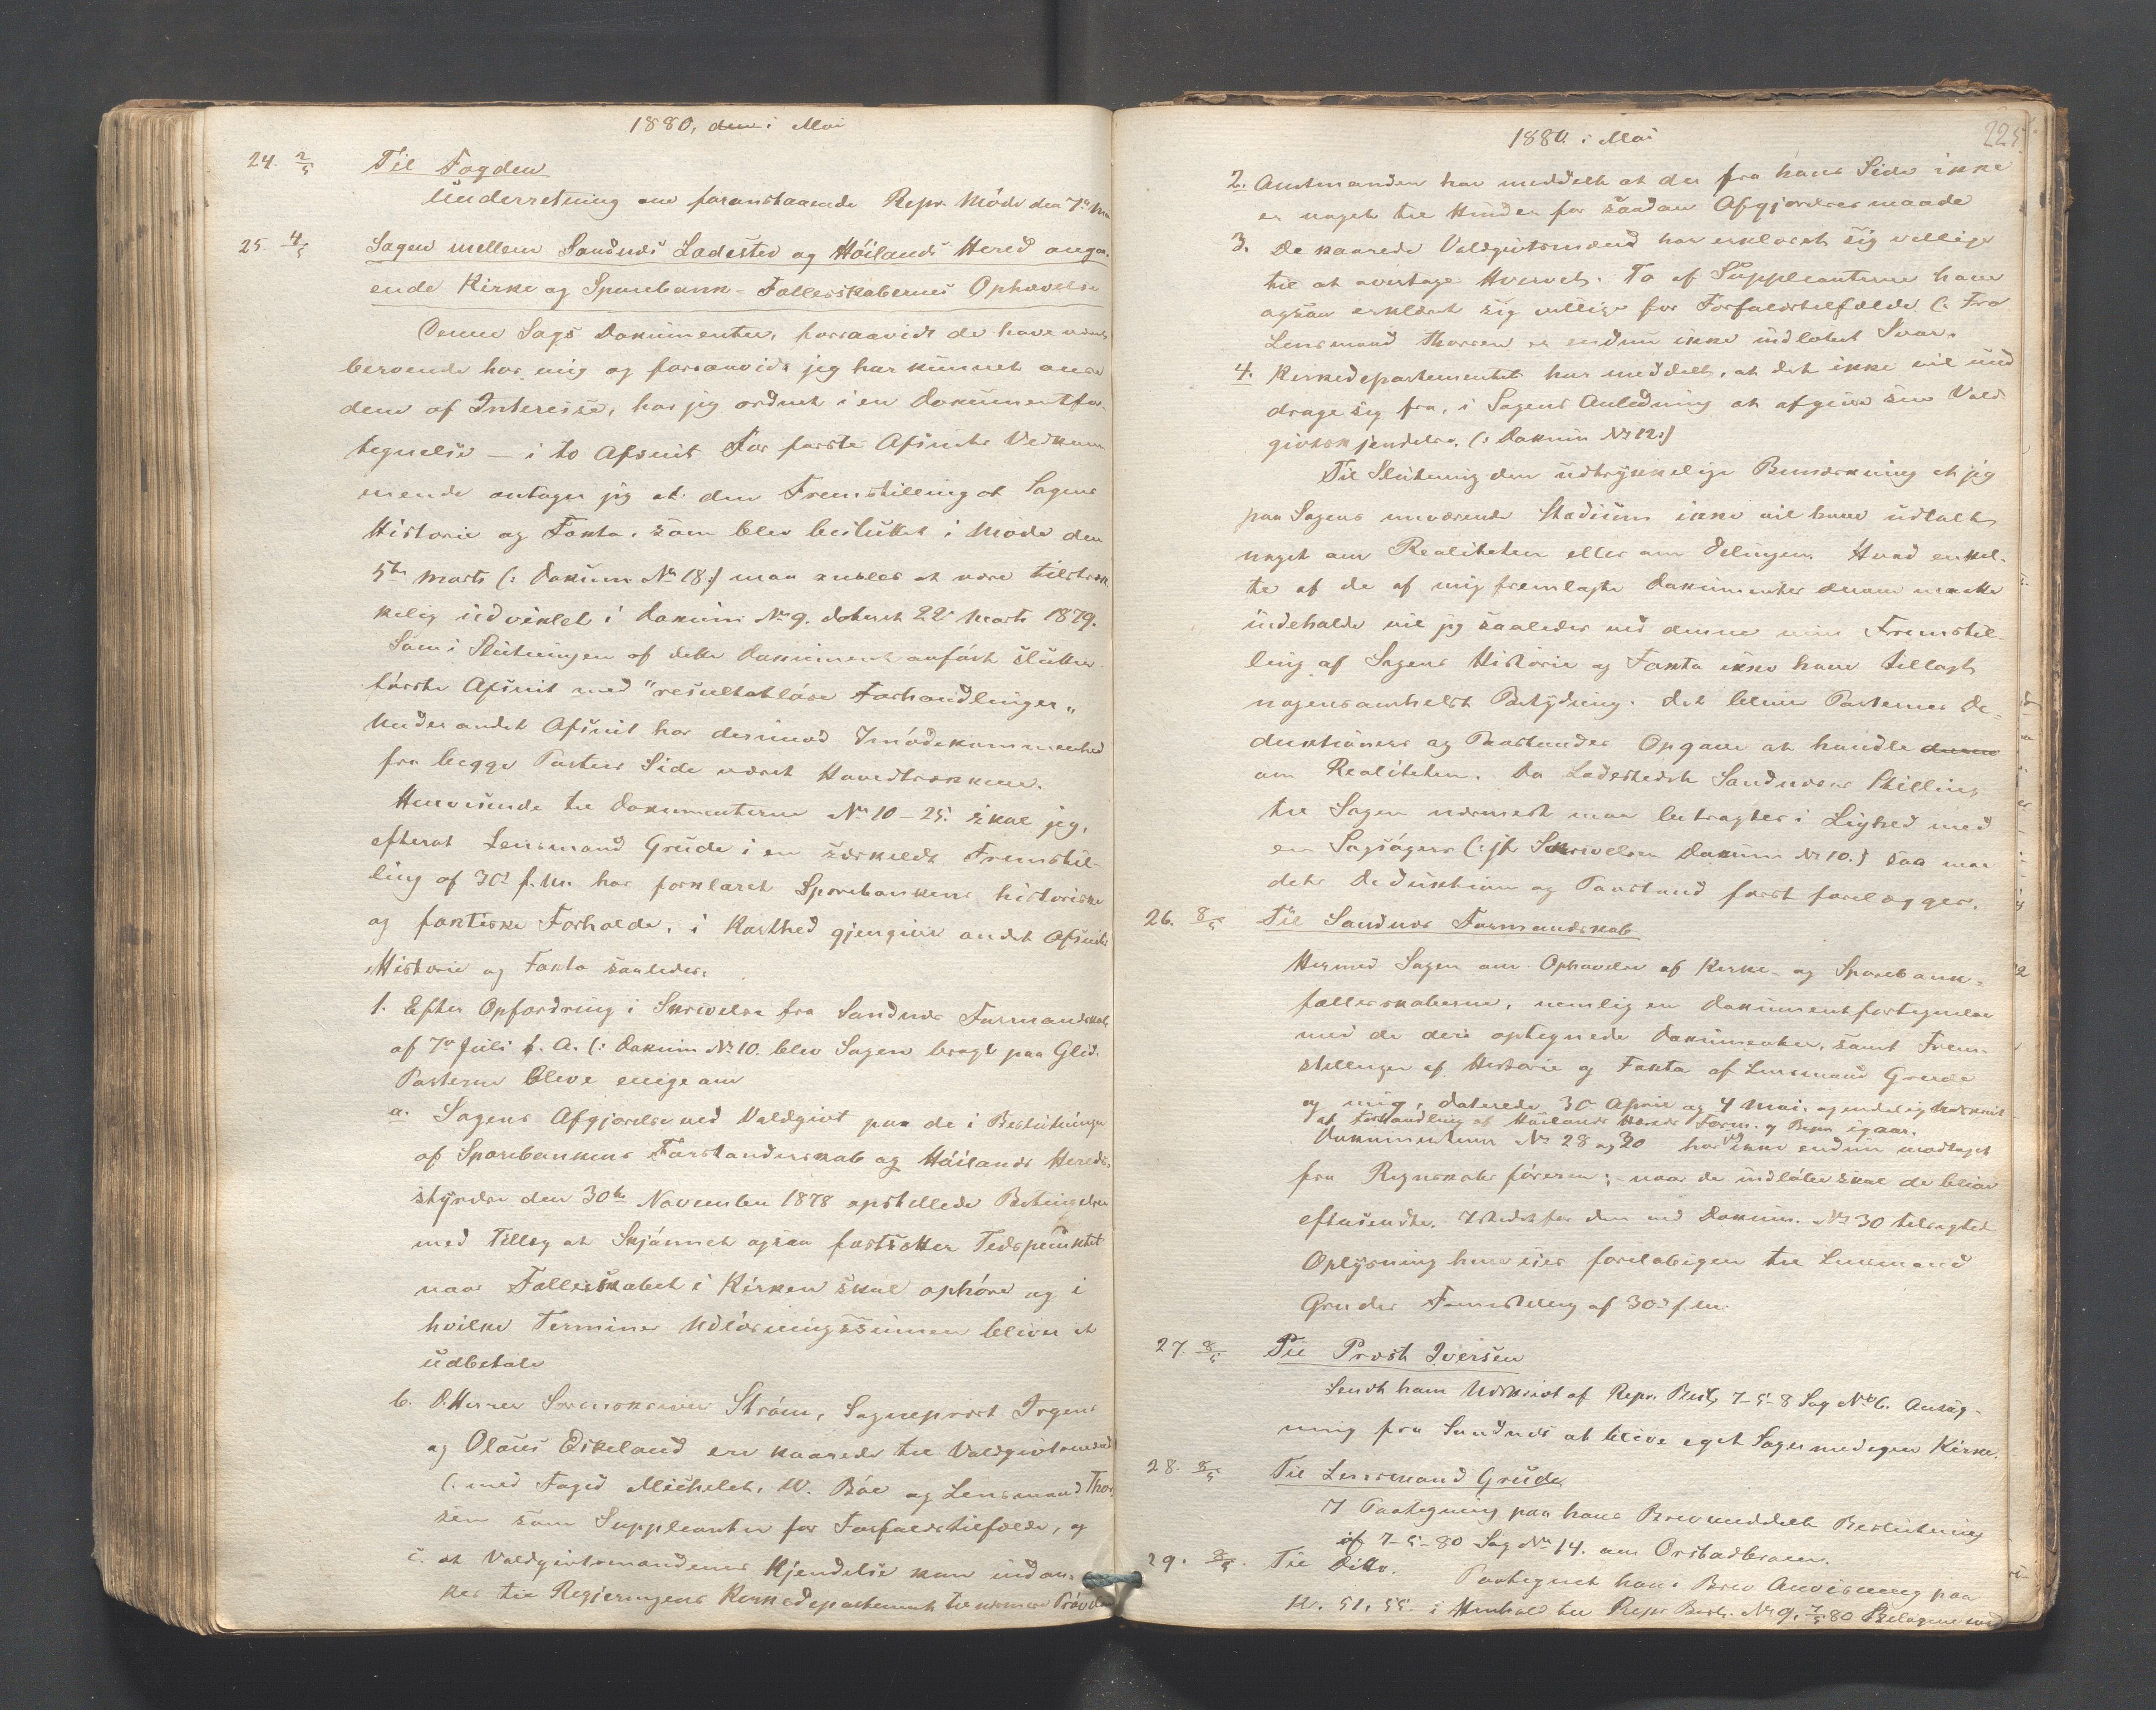 1880, den i Mai
24. 2/5 Til Fogden
Underretning om foranstaaende Repr. Møde den 7de
25. 4/5 Sagen mellem Sandnes Ladested og Höilands Hered anga-
ende Kirke og Sparebank-Fællesskabernes Ophævelse
Denne Sags Dokumenter, forsaavidt de have været
beroende hos mig og forsaavidt jeg har kunnet anse
dem af Interesse, har jeg ordnet i en Dokumentfor-
tegnelse — i to Afsnit. For første Afsnits Vedkom
mende antager jeg at den Fremstilling af Sagens
Historie og Fakta, som blev besluttet i Møde den
5te Marts (: Dokum No 18:) maa ansees at være tilstræk
kelig udviklet i Dokum No 9. dateret 22 Marts 1879.
Som i Slutningen af dette Dokument anført slutter
første Afsnit med "resultatløse Forhandlinger"
Under andet Afsnit har derimod Imødekommenhed
fra begge Parters Side været Hovedtrækkene.
Henvisende til Dokumenterne No 10-25. skal jeg,
efterat Lensmand Grude i en særskilt Fremstil-
ling af 30te f. M. har forklaret Sparebankens historiske
og faktiske Forholde, i Korthed gjengive andet Afsnits
Historie og Fakta saaledes:
1. Efter Opfordring i Skrivelse fra Sandnes Formandskab
af 7de Juli f. A. (: Dokum No 10. blev Sagen bragt paa Glid.
Parterne bleve enige om
a. Sagens Afgjørelse ved Voldgivt paa de i Beslutninger
af Sparebankens Forstanderskab og Höilands Hereds-
styrelse den 30te November 1878 opstillede Betingelser
med Tillæg at Skjønnet ogsaa fastsætter Tidspunktet
naar Fællesskabet i Kirken skal ophøre og i
hvilke Terminer Udløsningssummen bliver at
udbetale
b. D'Herrer Sorenskriver Strøm, Sogneprest Irgens
og Olaus Eskeland ere kaarede til Voldgivtsmænd
(: med Foged Michelet, W. Böe og Lensmand Thor
sen som Suppleanter for Forfaldstilfælde, og
c. at Voldgivtsmændenes Kjendelse kan indan-
kes til Regjeringens Kirkedepartement til nærmere Prøvelse
225
1880. i Mai
2. Amtmanden har meddelt at der fra hans Side ikke
er noget til Hinder for saadan Afgjørelsesmaade
3. De kaarede Voldgivtsmænd har erklæret sig villige
til at overtage Hvervet. To af Suppleanterne have
ogsaa erklæret sig villige for Forfaldstilfælde (: Fra
Lensmand Thorsen er endnu ikke indløbet Svar.
4. Kirkedepartementet har meddelt, at det ikke vil und
drage sig fra, i Sagens Anledning at afgive sin Vold-
givtskjendelse. (: Dokum No 12:)
Til Slutning den udtrykkelige Bemærkning at jeg
paa Sagens nuværende Stadium ikke vil have udtalt
noget om Realiteten eller om Delingen. Hvad enkel-
te af de af mig fremlagte Dokumenter derom maatte
indeholde vil jeg saaledes ved denne min Fremstil-
ling af Sagens Historie og Fakta ikke have tillagt
nogensomhelst Betydning. Det bliver Parternes De-
duktioners og Paastandes Opgave at handle
om Realiteten. Da Ladestedet Sandnæses Stilling
til Sagen nærmest maa betragtes i Lighed med
en Sagsøgers (: jfr Skrivelsen Dokum No 10.) saa maa
dets Deduktion og Paastand først forelægges.
26. 8/5 Til Sandnes Formandskab
Hermed Sagen om Ophævelse af Kirke- og Sparebank-
fællesskaberne, nemlig en Dokumentfortegnelse
med de deri optegnede Dokumenter, samt Frem-
stillinger af Historie og Fakta af Lensmand Grude
og mig, daterede 30te April og 4 Mai, og endelig Udskrift
af Forhandling af Höilands Hereds Form. og Repr. igaar.
Dokumenterne No 28 og 30 har vi ikke endnu modtaget
fra Regnskabsføreren; naar de indløber skal de blive
eftersendte. Istedetfor den ved Dokum. No 30 tilsigtede
Oplysning henvises foreløbigen til Lensmand
Grudes Fremstilling af 30te f. m.
27. 8/5 Til Provst Iversen
Sendt ham Udskrivt af Repr. Besl. 7-5-8 Sag No 6. Ansøg-
ning fra Sandnes at blive eget Sogn med egen Kirke.
28. 8/5 Til Lensmand Grude
I Paategning paa hans Brev meddelt Beslutning
af 7-5-80 Sag No 14. om
29. 8/5. Til Ditto. Paategnet hans Brev Anvisning paa
Kr. 51,55. i Henhold til Repr Besl. No 9. 7/5 80 Bilagene